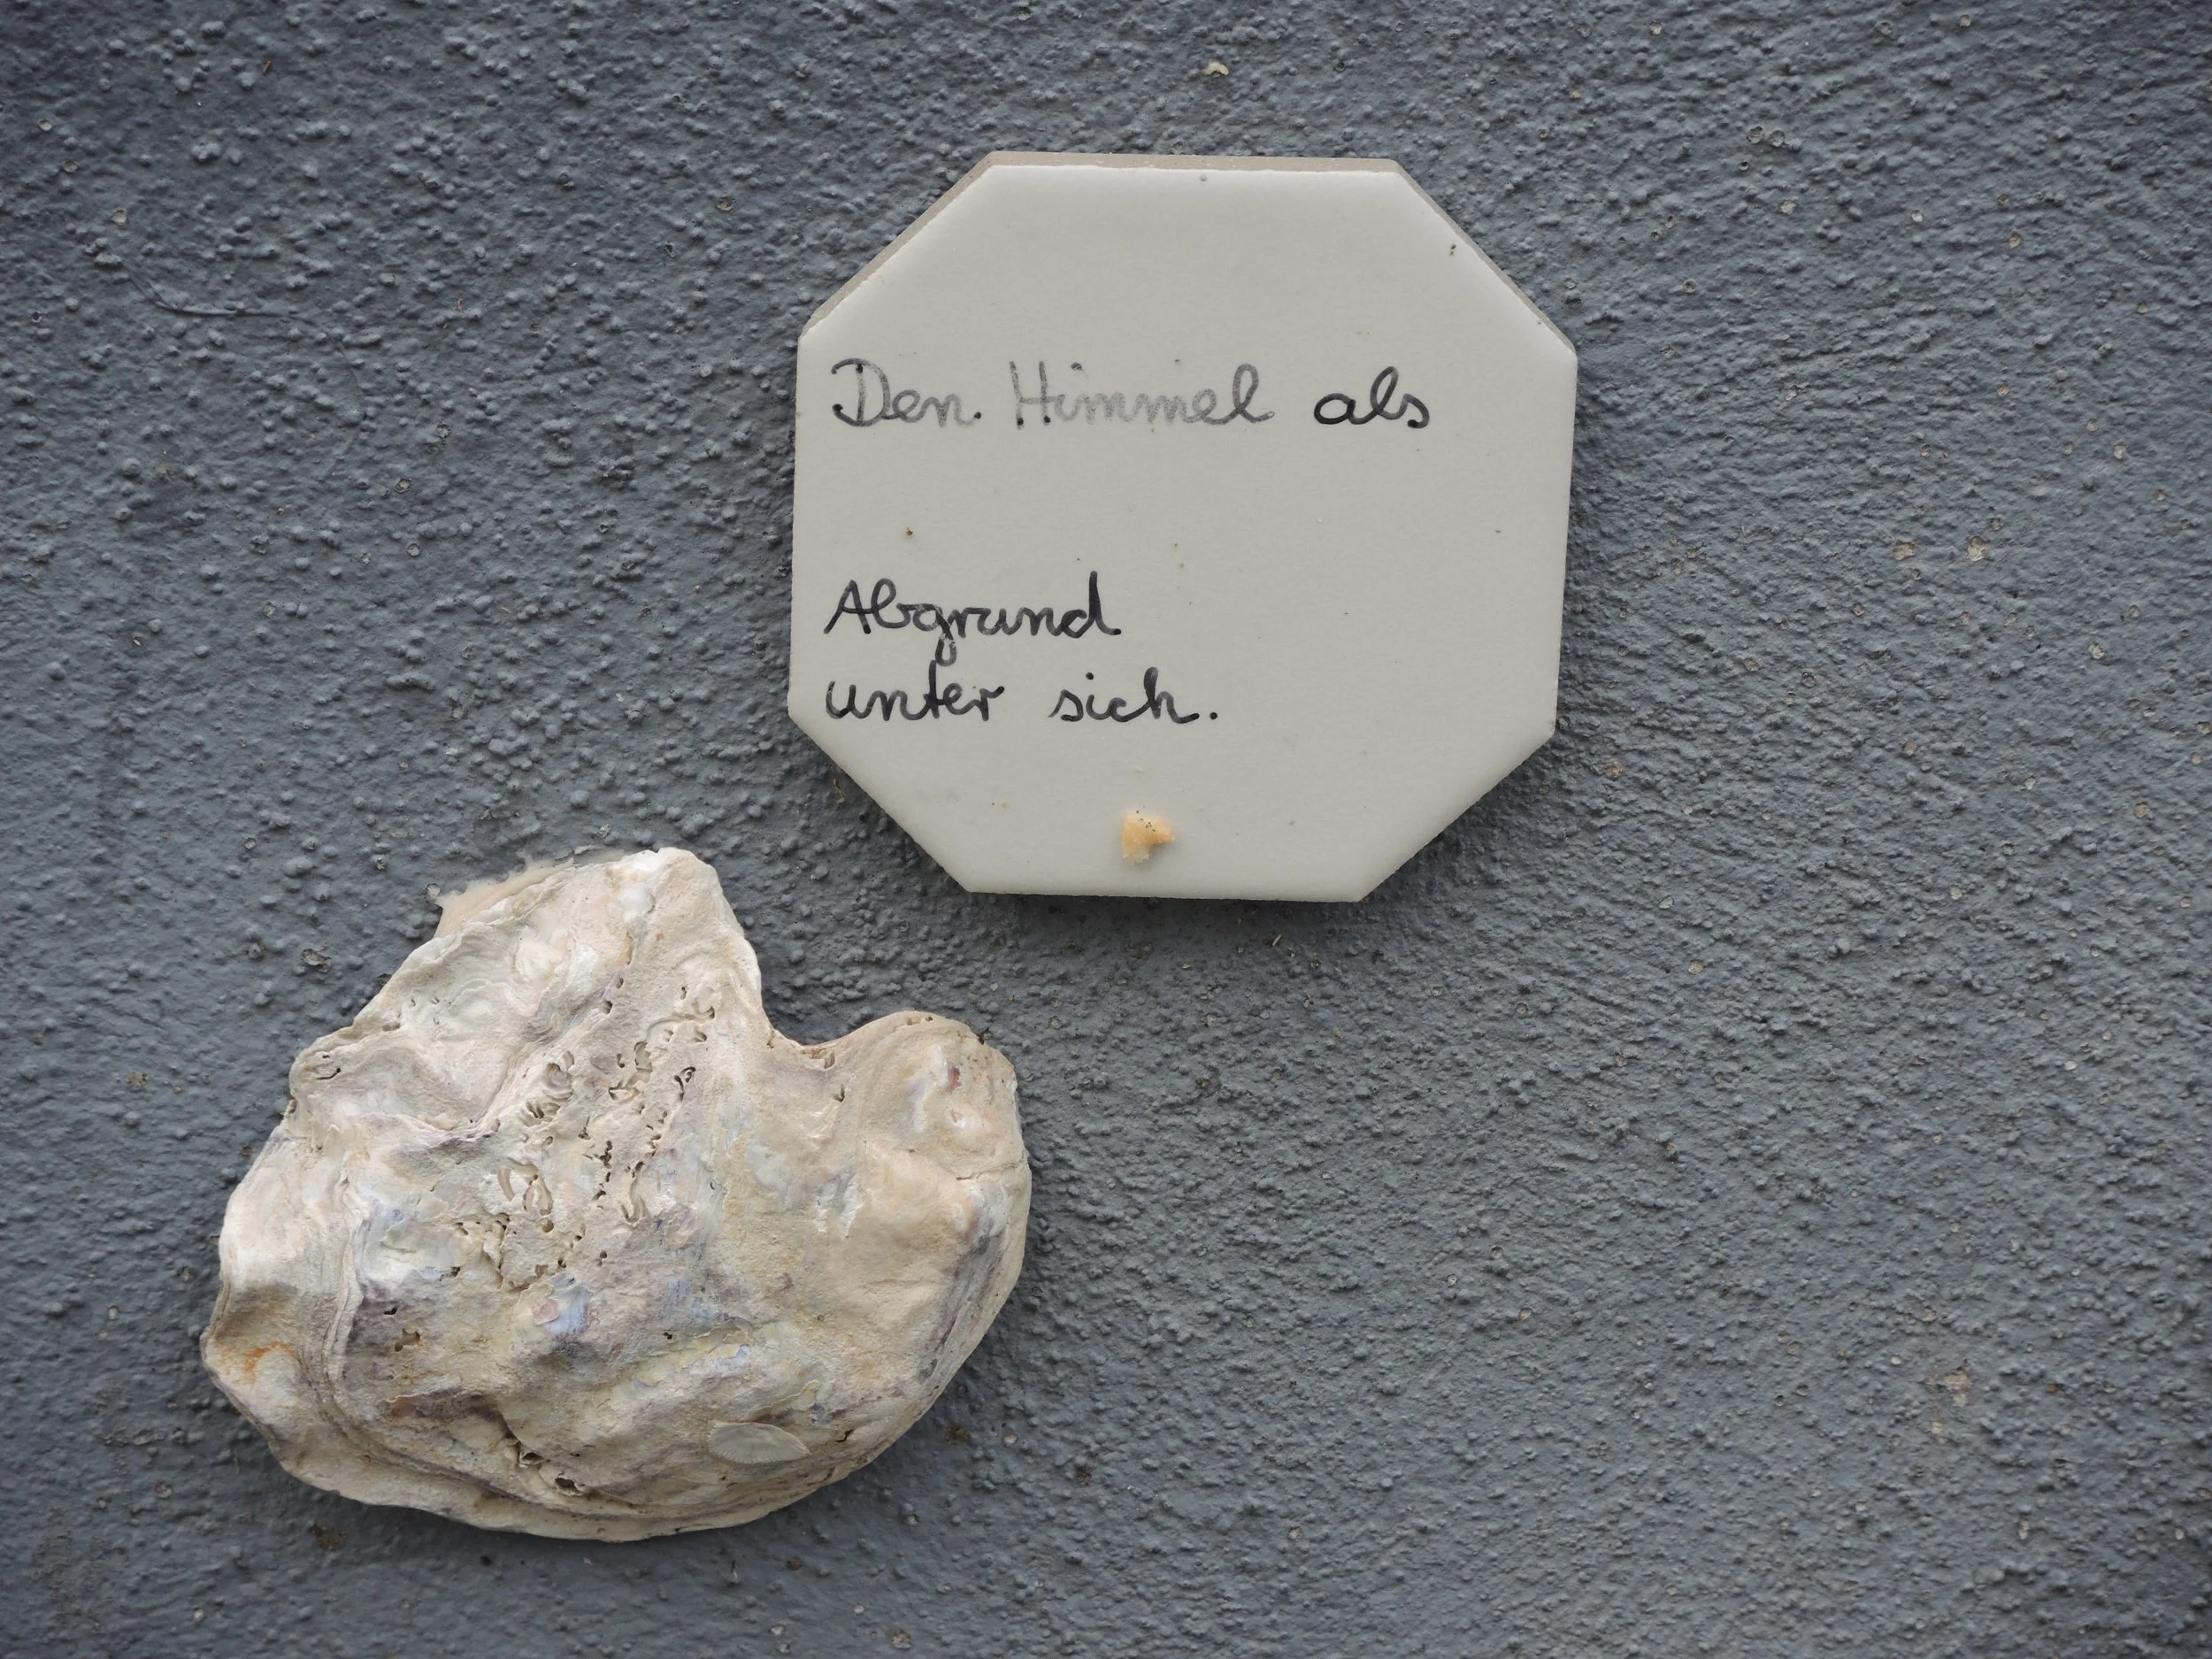 Den Himmel als
Abgrund
unter sich.